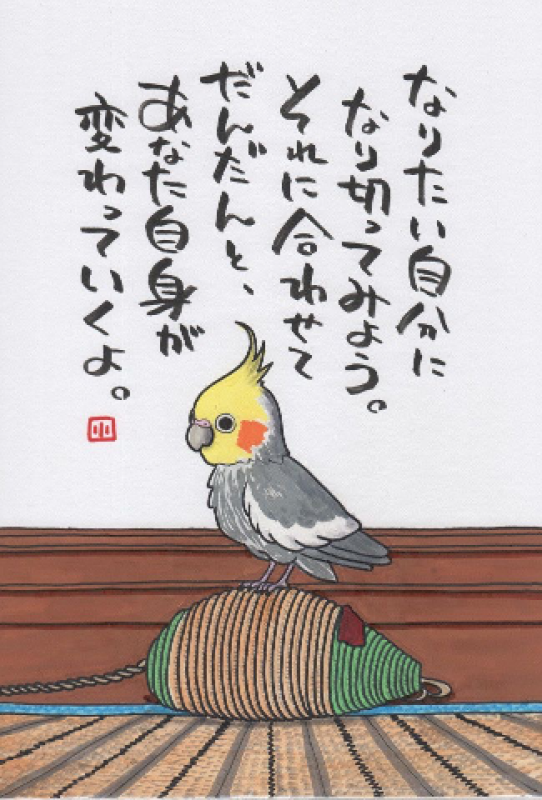 なりたい自分に
なり切ってみよう。
それに合わせて
だんだんと、
あなた自身が
変わっていくよ。
小